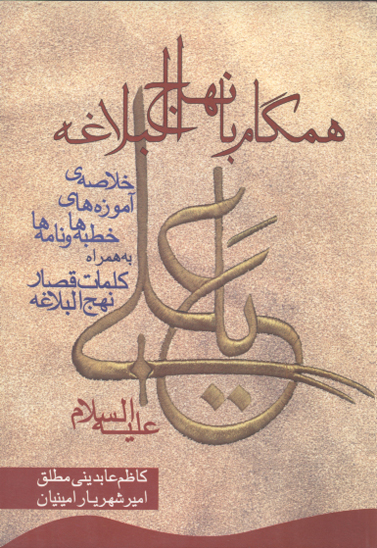 همگام با نهج البلاغه
خلاصه‌ی
آموزه‌های
خطبه‌ها
و نامه‌ها
به همراه
کلمات قصار
نهج البلاغه
یا علی
علیه السلام
کاظم عابدینی مطلق
امیر شهریار امینیان